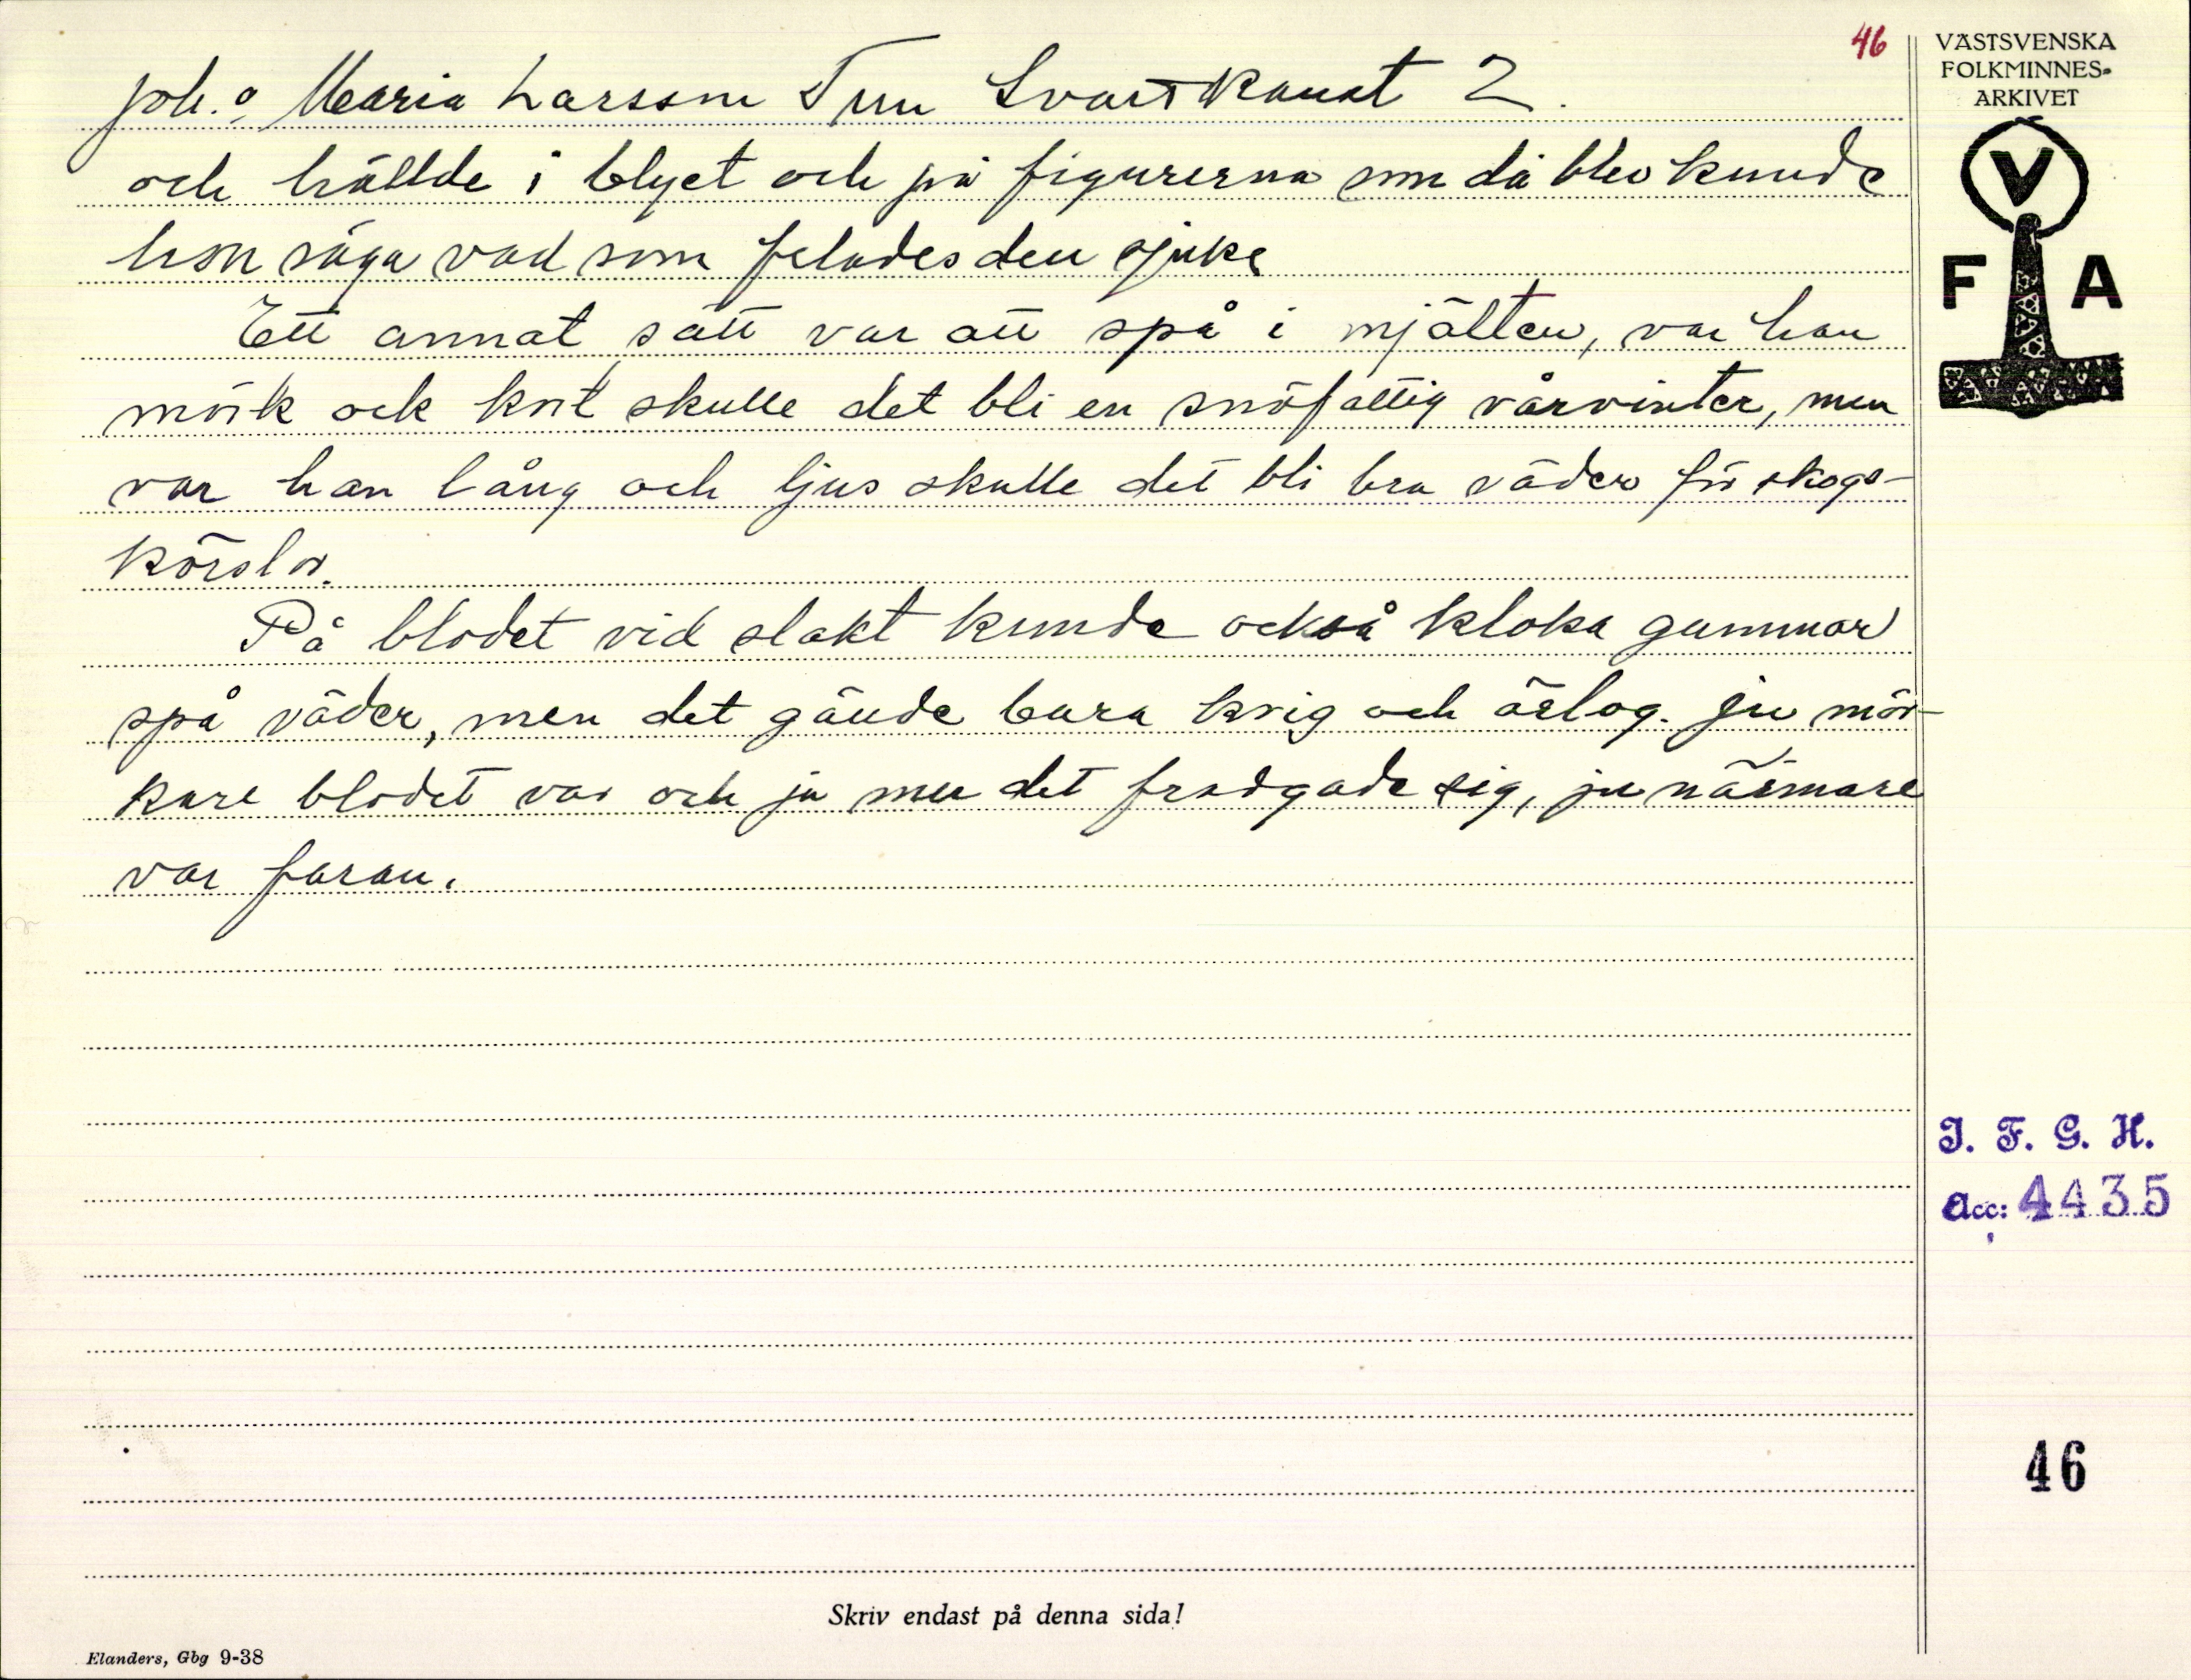 46
Joh. o Maria Larsson Tun Svartkanat 2.
och hällde i blyet och på figurerna som då blev kunde
hon säga vad som felades den sjuke
Ett annat sätt var att spå i mjälten, var han
mörk och kort skulle det bli en snöfattig vårvinter, men
var han lång och ljus skulle det bli bra väder för skogs-
körslor.
På blodet vid slakt kunde också kloka gummor
spå väder, men det gällde bara krig och örlog. Ju mör-
kare blodet var och ju mer det fradgade sig, ju närmare
var faran.
VÄSTSVENSKA
FOLKMINNES-
ARKIVET
V
F A
I. F. G. H.
Acc: 4435
46
Skriv endast på denna sida!
Elanders, Gbg 9-38